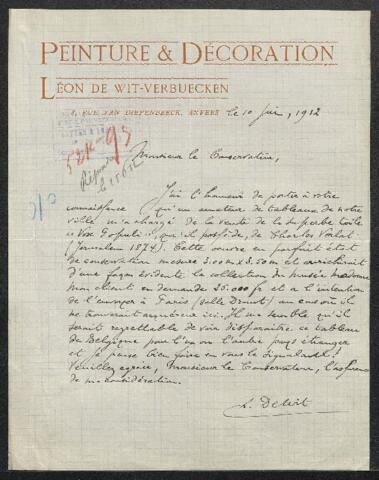 PEINTURE & DÉCORATION
LÉON DE WIT-VERBUECKEN
RUE VAN DIEPENBEECK, ANVERS le 10 Juin, 1912
Répondu
le
Monsieur le Conservateur,
J'ai l'honneur de porter à votre
connaissance qu'un amateur de tableaux de notre
ville m'a chargé de la vente de la superbe toile
« Vox Populi », qu'il possède, de Charles Verlat
(Jerusalem 1874). Cette œuvre en parfait état
de conservation mesure 3.00m x 3.50m et enrichirait
d'une façon évidente la collection du musée moderne
Mon client en demande 35.000 fr et a l'intention
de l'envoyer à Paris (salle Drouot) au cas où il
ne trouverait acquéreur ici. Il me semble qu'il
serait regrettable de voir disparaître ce tableau
de Belgique pour l'un ou l'autre pays étranger
et je pense bien faire en vous le signalant.
Veuillez agréer, Monsieur le Conservateur, l'assurance
de ma considération.
L. De Wit